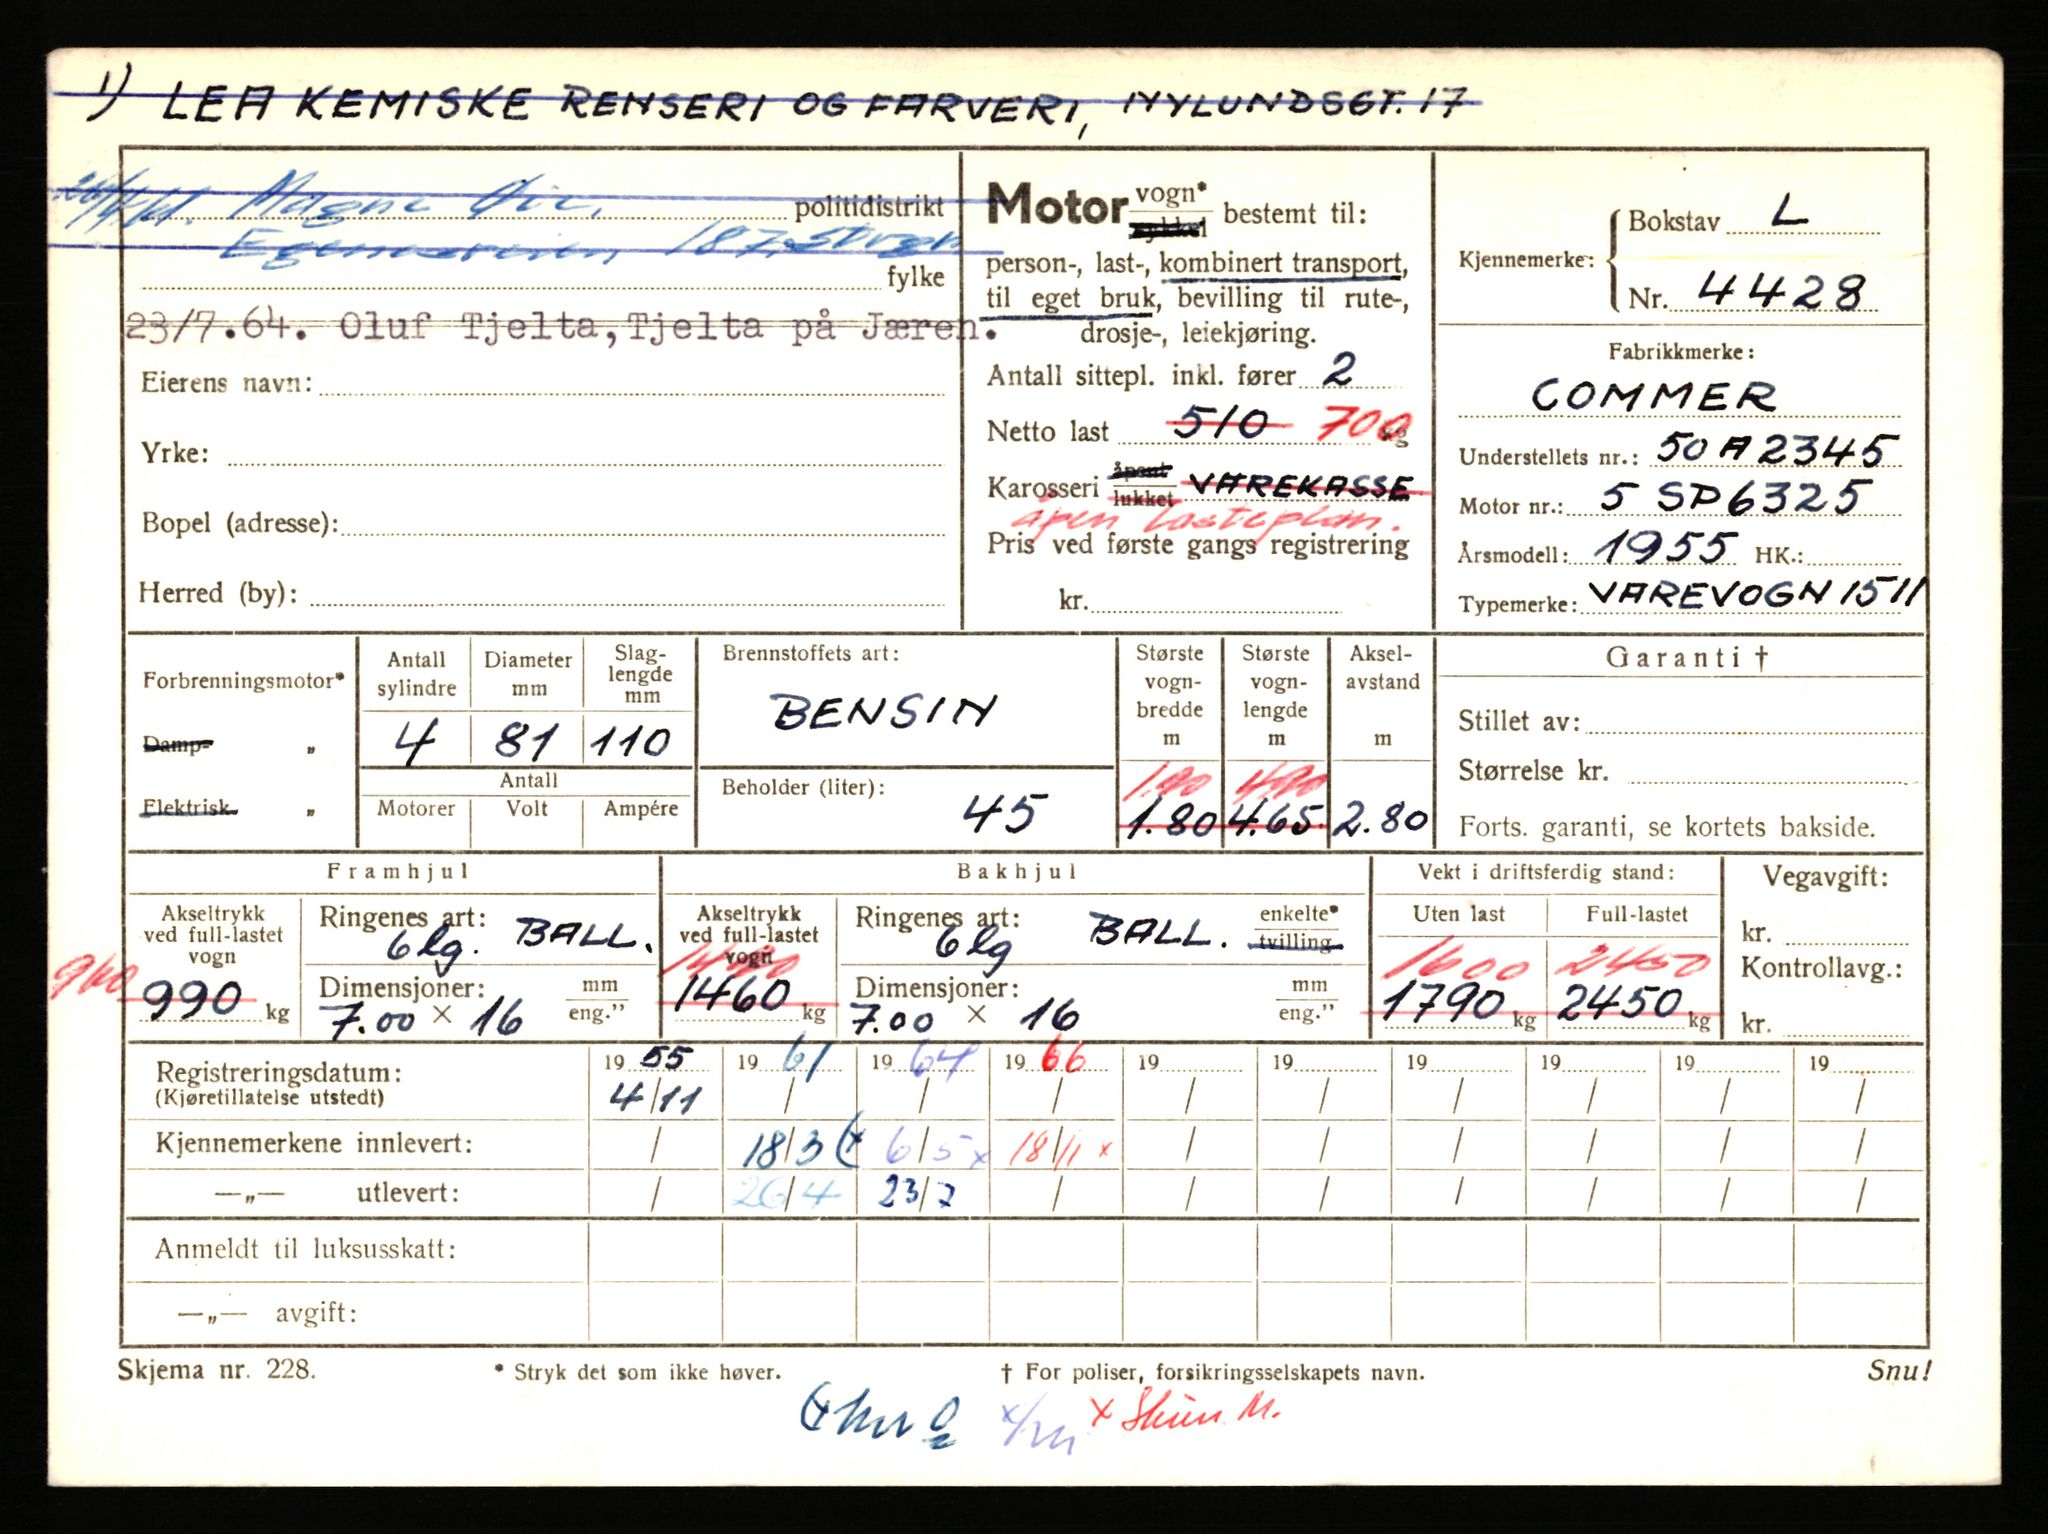 1) LEA KEMISKE RENSERI OG FARVERI, NYLUNDSGT. 17
Magne
politidistrikt
187
fylke
23/7.64. Oluf Tjelta, Tjelta på Jæren.
Eierens navn:
Yrke:
Bopel (adresse):
Herred (by):
Motor vogn* sykkel bestemt til:
person-, last-, kombinert transport,
til eget bruk, bevilling til rute-,
drosje-, leiekjøring.
Antall sittepl. inkl. fører 2
Netto last 510 700 kg
Karosseri åpent lukket VAREKASSE
åpen lasteplan.
Pris ved første gangs registrering
kr.
Kjennemerke: Bokstav L
Nr. 4428
Fabrikkmerke:
COMMER
Understellets nr.: 50 A 2345
Motor nr.: 5 SP 6325
Årsmodell: 1955 HK.:
Typemerke: VAREVOGN 1511
Forbrenningsmotor*
Damp- „
Elektrisk „
Antall sylindre Diameter mm Slag-lengde mm
4 81 110
Antall
Motorer Volt Ampére
Brennstoffets art:
BENSIN
Beholder (liter):
45
Største vogn-bredde m Største vogn-lengde m Aksel-avstand m
1.90 4.90
1.80 4.65 2.80
Garanti †
Stillet av:
Størrelse kr.
Forts. garanti, se kortets bakside.
Framhjul
Akseltrykk ved full-lastet vogn
990 kg
Ringenes art: 6 lg. BALL.
Dimensjoner: mm eng."
7.00 × 16
Bakhjul
Akseltrykk ved full-lastet vogn
1460 kg
Ringenes art: 6 lg BALL. enkelte* tvilling
Dimensjoner: mm eng."
7.00 × 16
Vekt i driftsferdig stand:
Uten last Full-lastet
1600 2450
1790 kg 2450 kg
Vegavgift:
kr.
Kontrollavg.:
kr.
Registreringsdatum: 19 55 19 61 19 64 19 66 19 19 19 19 19 19
(Kjøretillatelse utstedt) 4/11 / / / / / / / / /
Kjennemerkene innlevert: / 18/3 6/5 x 18/11 x / / / / / /
—„— utlevert: / 26/4 23/7 / / / / / / /
Anmeldt til luksusskatt:
—„— avgift:
Skjema nr. 228. * Stryk det som ikke høver. † For poliser, forsikringsselskapets navn. Snu!